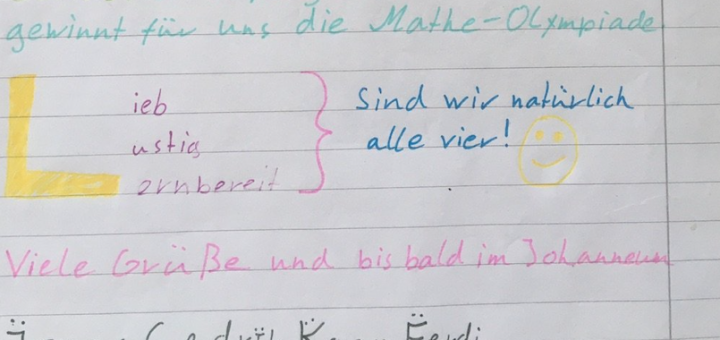 gewinnt für uns die Mathe-Olympiade
L ieb Sind wir natürlich
ustig alle vier!
ernbereit
Viele Grüße und bis bald im Johanneum